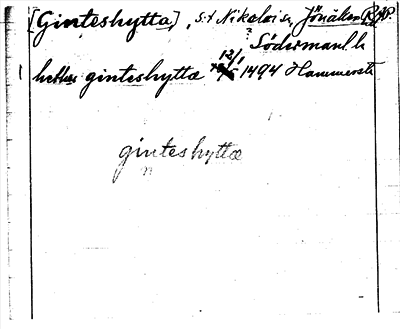 [Ginteshytta], S:t Nikolai sn, Jönåkers
Södermanl. l.
ginteshyttæ 12/1 1494 Hammersta
ginteshyttæ